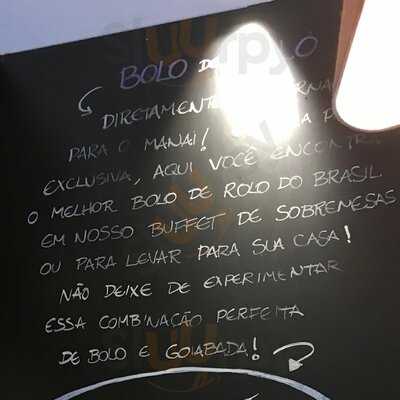 BOLO DE
DIRETAMENTE
PARA O MANAÍ!
EXCLUSIVA, AQUI VOCÊ ENCONTRA
O MELHOR BOLO DE ROLO DO BRASIL
EM NOSSO BUFFET DE SOBREMESAS
OU PARA LEVAR PARA SUA CASA!
NÃO DEIXE DE EXPERIMENTAR
ESSA COMBINAÇÃO PERFEITA
DE BOLO E GOIABADA!